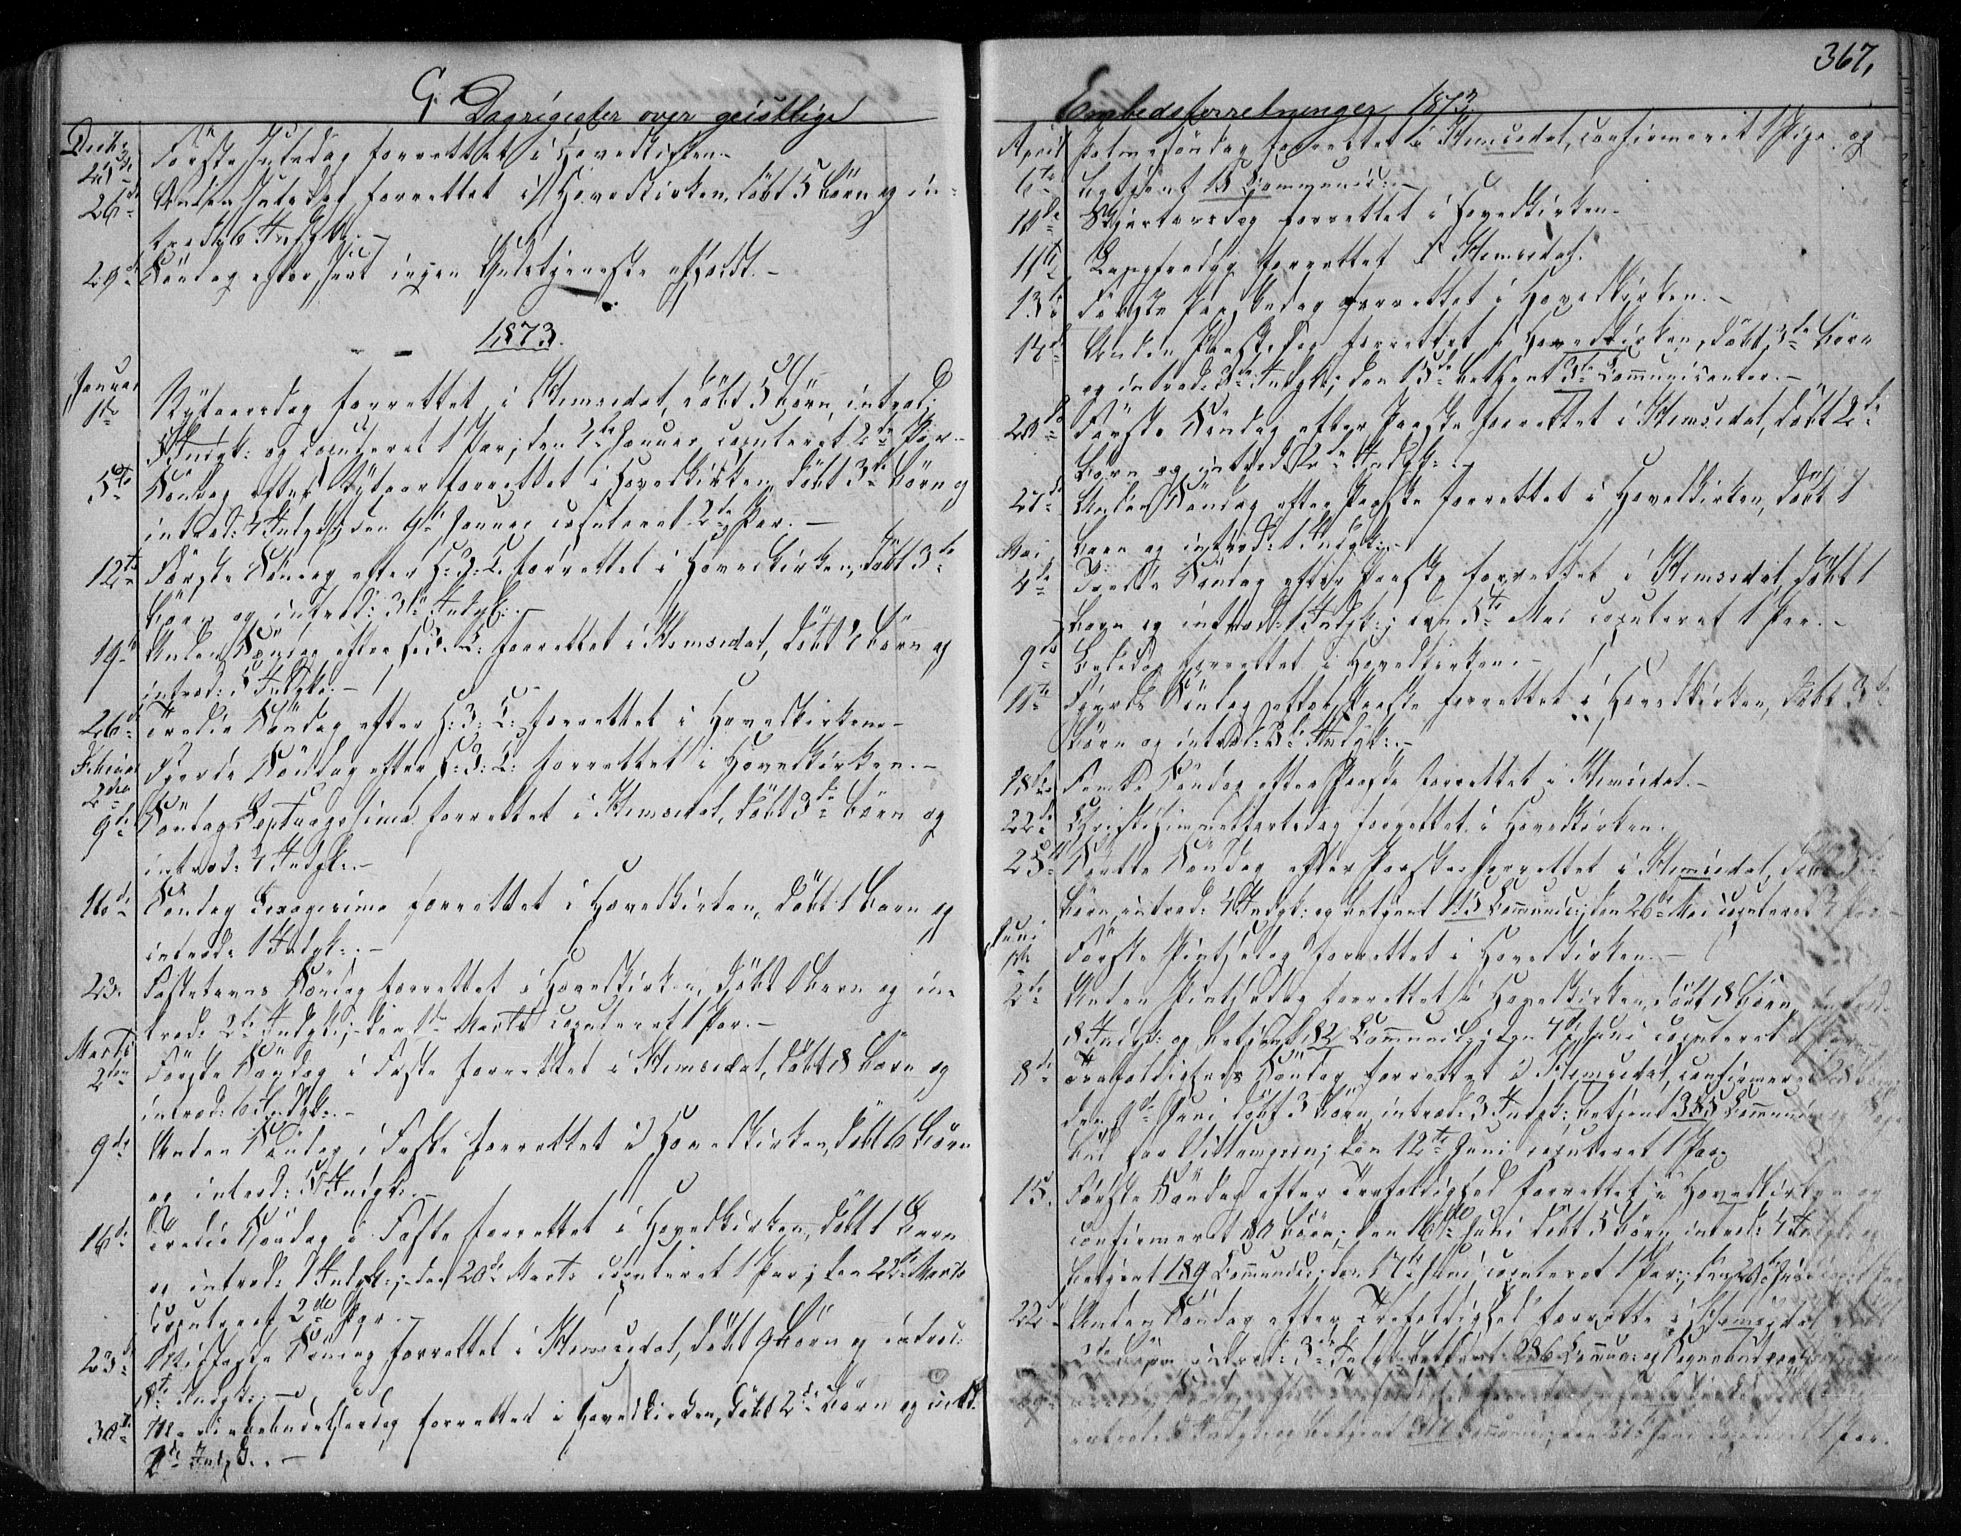 G. Dagrigester over geistlige
Decbr
25de Første Juledag forrettet i Hovedkirken.-
26de Anden Juledag forrettet i Hovedkirken, døbt 5 børn og in-
trod: 6 Indgk:.-
29de Søndag efter Juul ingen Gudstjeneste afholdt.-
1873.
Januar
1ste Nytaarsdag forrettet i Hemsedal, døbt 5 børn, introd:
Indgk: og copuleret 1 Par; den 2de Januar copuleret 2de Par.-
5te Søndag efter Nytaar forrettet i Hovedkirken, døbt 3de børn og
introd: 4 Indgk:; den 9de Januar copuleret 2de Par.-
12te Første Søndag efter H: 3: K: forrettet i Hovedkirken, døbt 3de
børn og introd: 3de Indgk:.-
19de Anden Søndag efter H: 3: K: forrettet i Hemsedal, døbt børn og
introd: 5 Indgk:.-
26de Tredie Søndag efter H: 3: K: forrettet i Hovedkirken.-
Februar
2den Fjerde Søndag efter H: 3: K: forrettet i Hovedkirken.-
9de Søndag Septuagesima forrettet i Hemsedal, døbt 3de børn og
introd: 4 Indgk:.-
16de Søndag Sexagesima forrettet i Hovedkirken, døbt 1 barn og
introd: 1 Indgk:.-
23. Fastelavns Søndag forrettet i Hovedkirken, døbt 1 barn og in-
trod: 2de Indgk:; den 1ste Marts copuleret 1 Par.-
Marts
2den Første Søndag i Faste forrettet i Hemsedal, døbt 8 børn og
introd: 6 Indgk:.-
9de Anden Søndag i Faste forrettet i Hovedkirken, døbt 6 børn
og introd: 5 Indgk:.-
16de Tredie Søndag i Faste forrettet i Hovedkirken, døbt 1 barn
og introd: 1 Indgk:; den 20de Marts copuleret 1 Par; den 22de Marts
copuleret 2de Par.-
23de Midfaste Søndag forrettet i Hemsedal, døbt 9 børn og introd:
8te Indgk:.-
30te Mariebebudelsesdag forrettet i Hovedkirken, døbt 2de børn og introd:
2de Indgk:.-
367.
Embedsforretninger 1873.
April
6te Palmesøndag forrettet i Hemsedal, confirmeret 1 Pige og
betjent 15 Communic:.-
10de Skjærtorsdag forrettet i Hovedkirken.-
11te Langfredag forrettet i Hemsedal.
13de Første Paaskedag forrettet i Hovedkirken.-
14de Anden Paaskedag forrettet i Hovedkirken, døbt 3de børn
og introd: 3de Indgk:; den 15de betjent Communicanter.-
20de Første Søndag efter Paaske forrettet i Hemsedal, døbt 2de
børn og introd: 2de Indgk:.-
27de Anden Søndag efter Paaske forrettet i Hovedkirken, døbt 1
barn og introd: 1 Indgk:.-
Mai
4de Tredie Søndag efter Paaske forrettet i Hemsedal, døbt 1
barn og introd: 1 Indgk:; den 5te Mai copuleret 1 Par.-
9de Bededag forrettet i Hovedkirken.-
11te Fjerde Søndag efter Paaske forrettet i Hovedkirken, døbt 3de
børn og introd: Indgk:.-
18de Femte Søndag efter Paaske forrettet i Hemsedal.-
22de Christi Himmelfartsdag forrettet i Hovedkirken.
25de Sjette Søndag efter Paaske forrettet i Hemsedal, døbt
børn, introd: 4 Indgk: og betjent 115 Communic:; den 26de Mai copuleret Par.-
Juni
1ste Første Pintsedag forrettet i Hovedkirken.-
2de Anden Pintsedag forrettet i Hovedkirken, døbt 8 børn, introd:
8 Indgk: og betjent 182 Communic:; den 4de Juni copuleret
8de Trefoldigheds Søndag forrettet i Hemsedal, confirmeret 28 børn;
den 9de Juni døbt 3 børn, introd: 3 Indgk:, betjent 385 Communic:
den 12te Juni copuleret 1 Par.
15. Første Søndag efter Trefoldighed forrettet i Hovedkirken og
confirmeret 80 børn; den 16de Juni døbt 5 børn, introd: 4 Indgk: og
betjent 189 Communic:; den 17de Juni copuleret 1 Par;
22de Anden Søndag efter Trefoldighed forrettet i Hemsedal
børn, introd: 3de Indgk: betjent 286 Commun:
introd: Indgk: og betjent Communic:; Juni copuleret 1 Par.